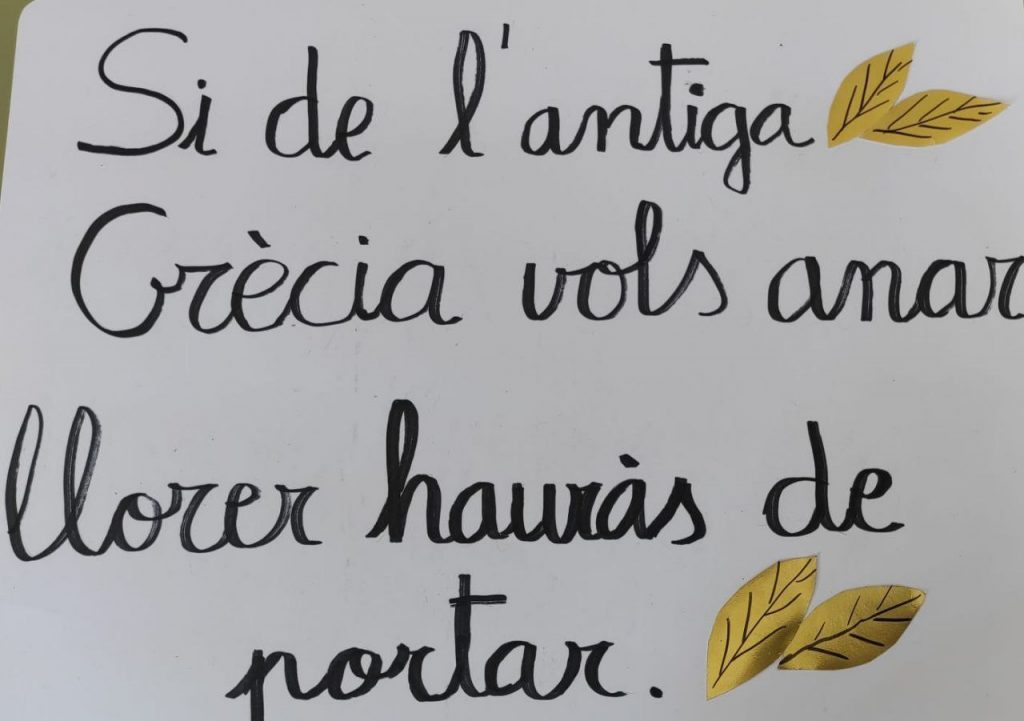 Si de l'antiga
Grècia vols anar
llorer hauràs de
portar.